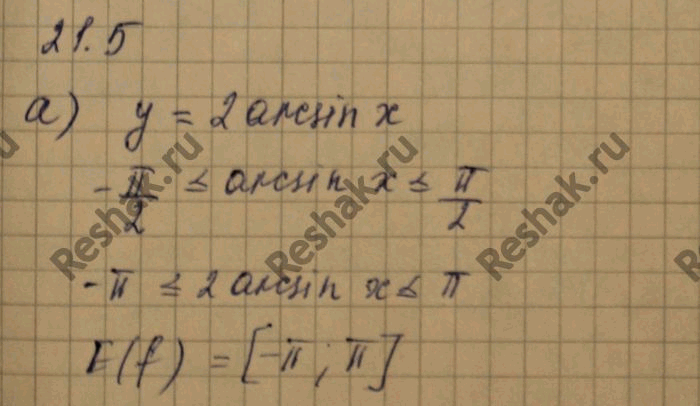 21.5
а) y = 2 arcsin x
-π/2 ≤ arcsin x ≤ π/2
-π ≤ 2 arcsin x ≤ π
E(f) = [-π; π]
Reshak.ru
Reshak.ru
Reshak.ru